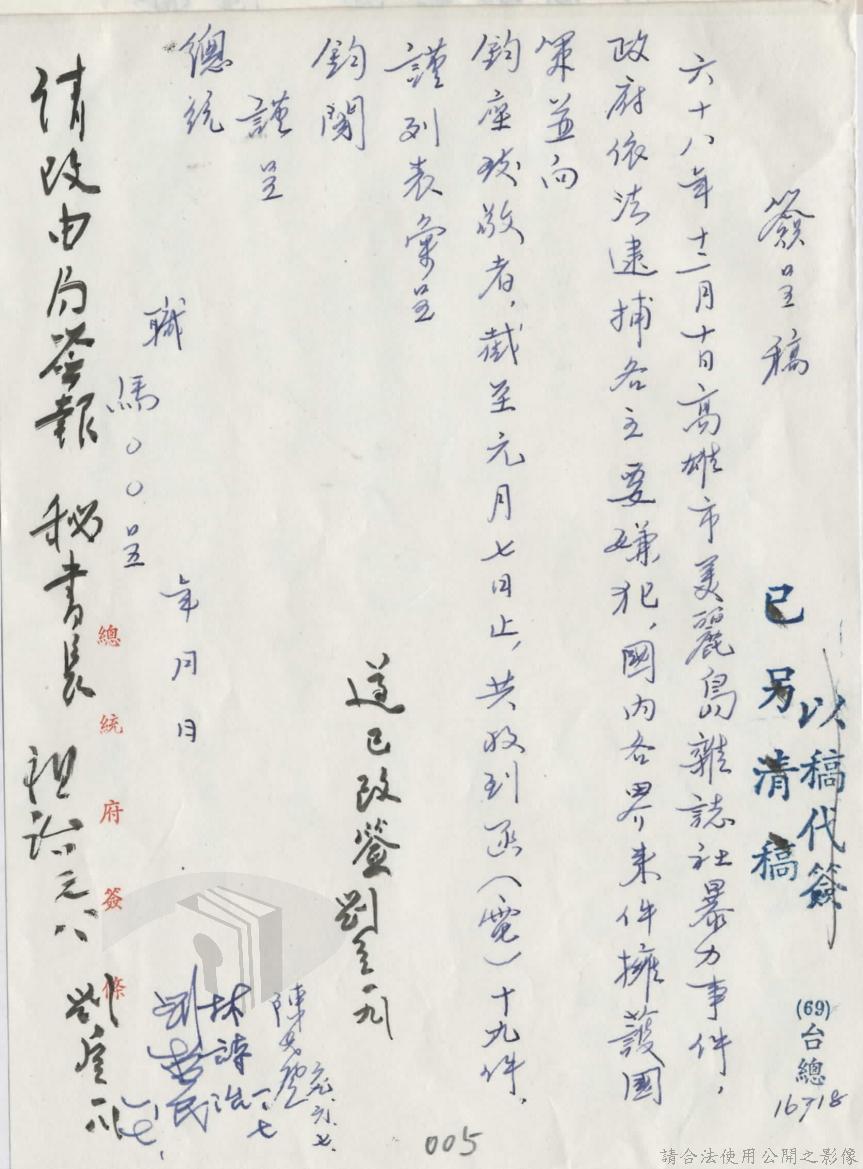 簽呈稿
以稿代簽
已另清稿
(69)台總
16718
六十八年十二月十日高雄市美麗島雜誌社暴力事件，
政府依法逮捕各主要嫌犯，國內各界來件擁護國
策並向
鈞座致敬者，截至元月七日止，共收到函（電）十九件，
謹列表彙呈
鈞閱
謹呈
總統
職
馬○○呈
年月日
遵已改簽
請改由局簽報 秘書長
總統府簽條
林詩治
一、七
005
請合法使用公開之影像